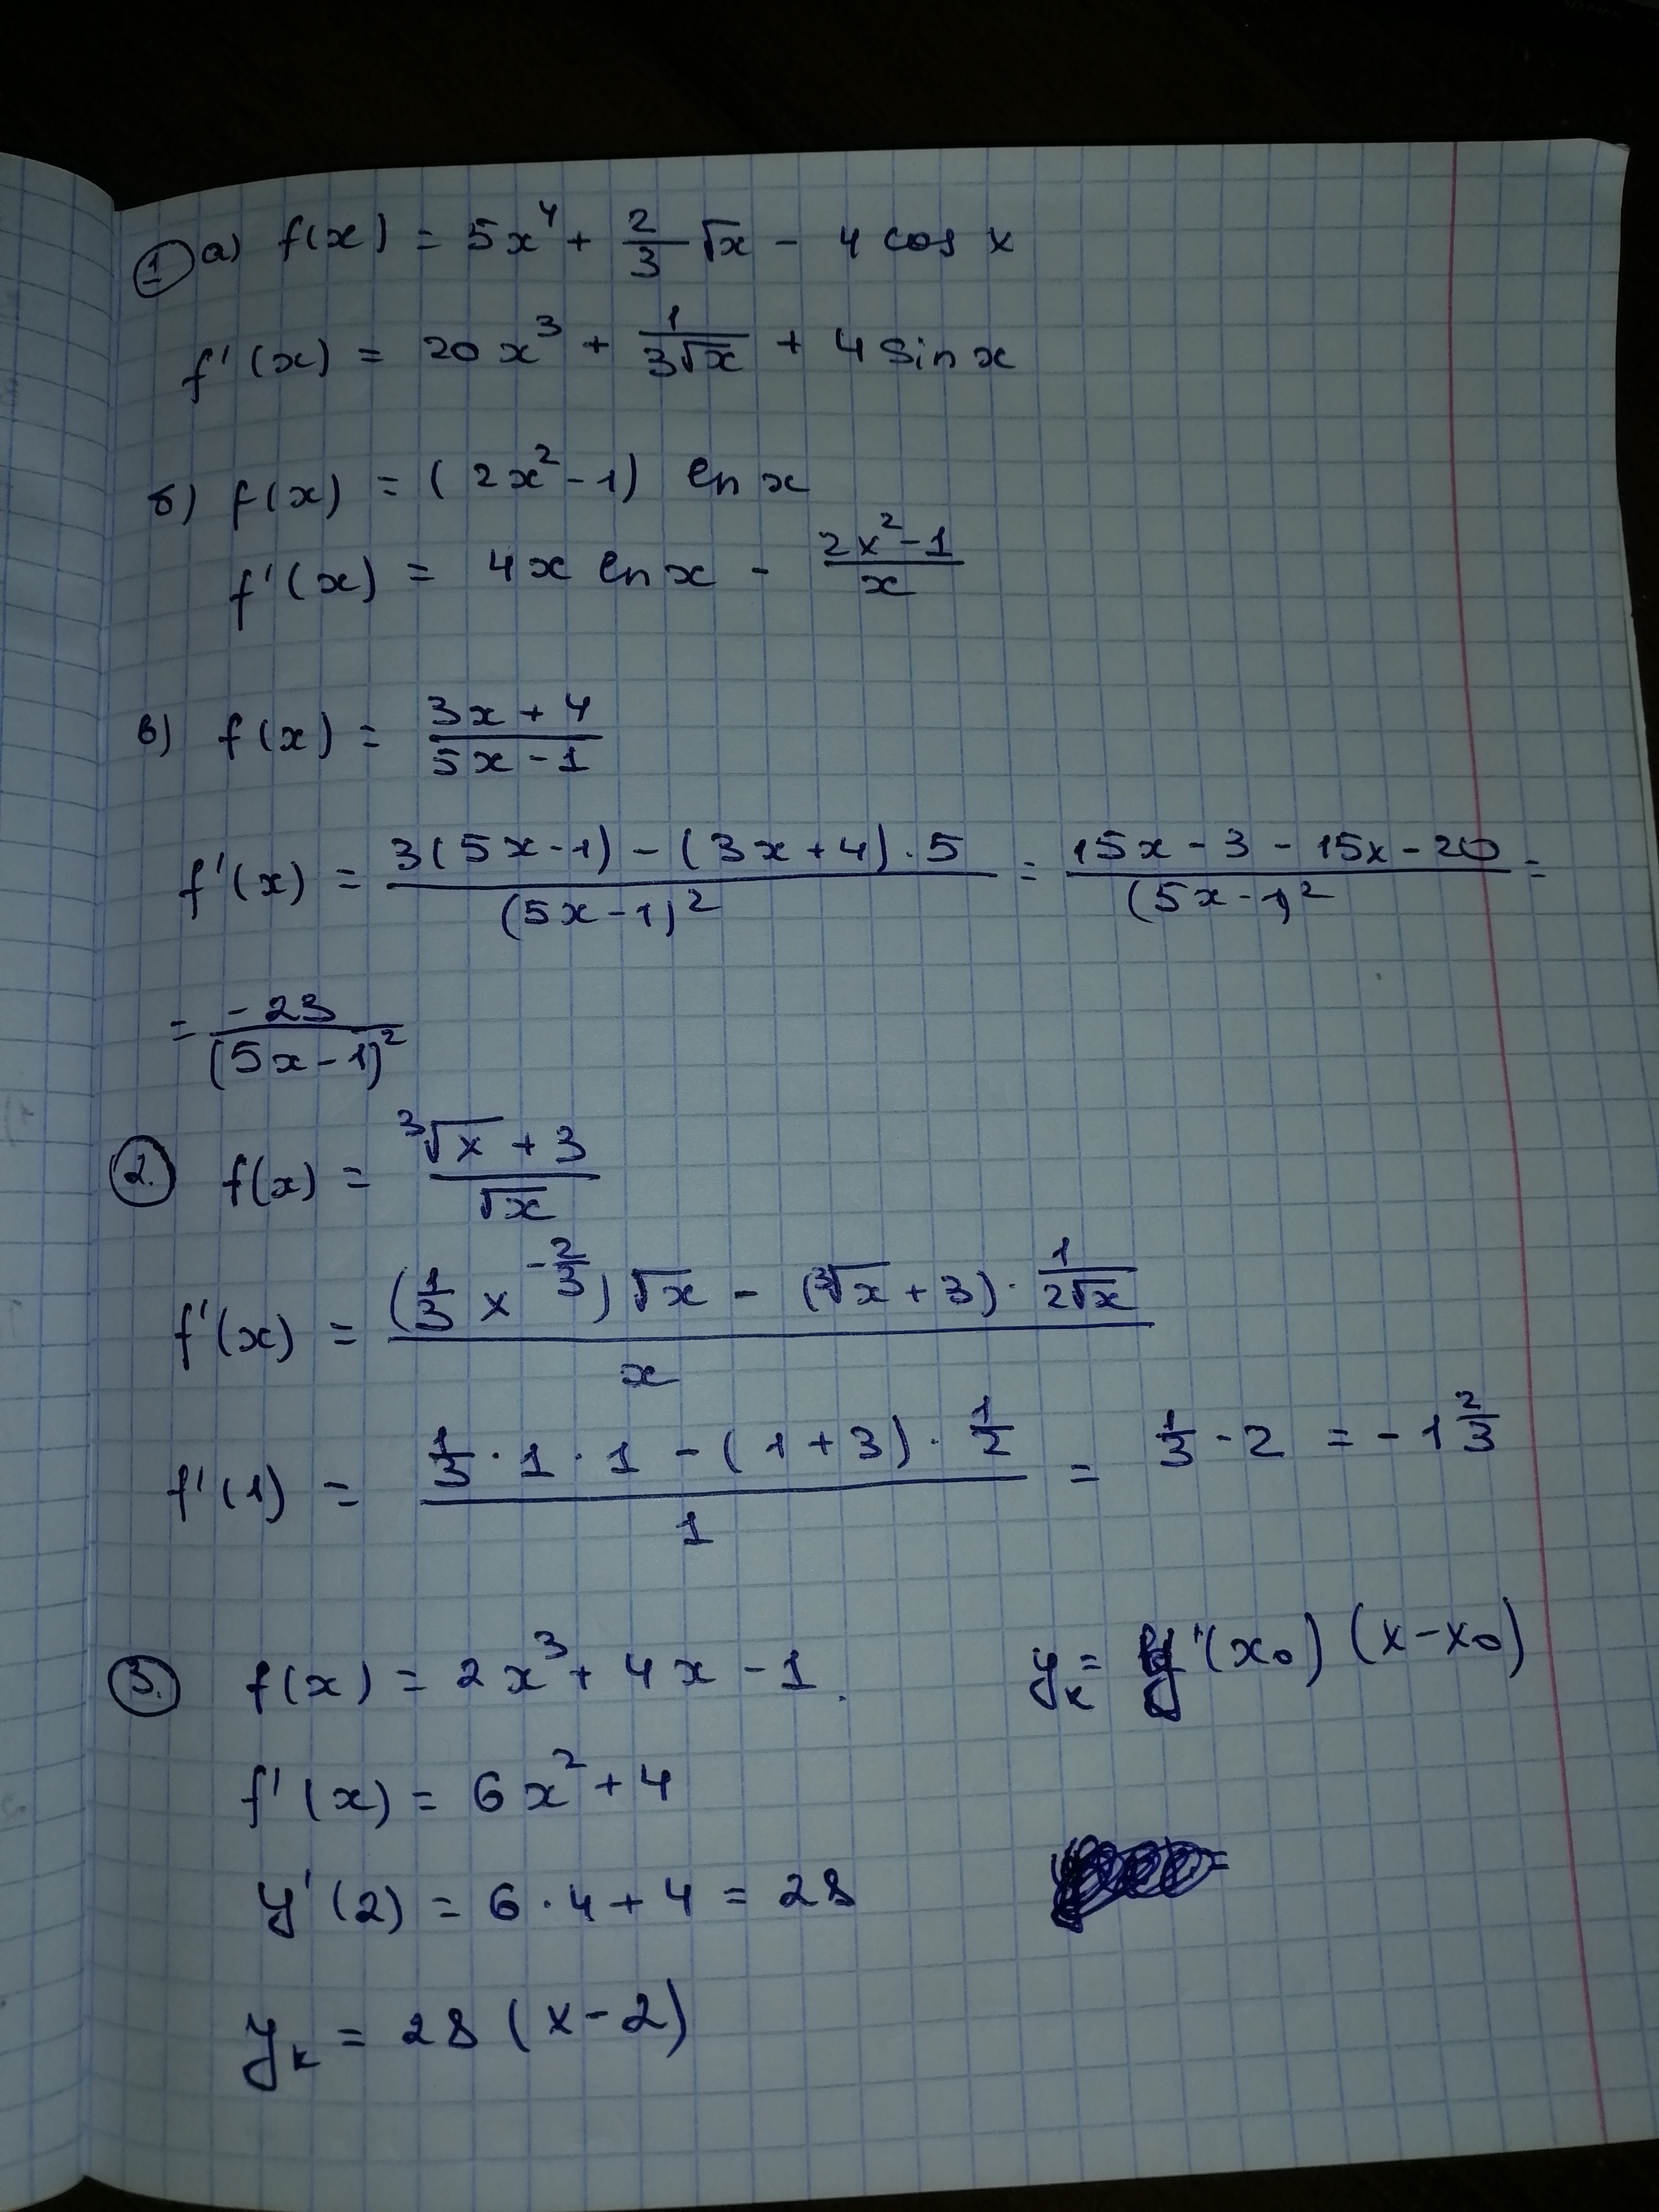 1 а) f(x) = 5x⁴ + 2/3 √x - 4 cos x
f'(x) = 20x³ + 1/(3√x) + 4 sin x
б) f(x) = (2x² - 1) ln x
f'(x) = 4x ln x - (2x² - 1)/x
в) f(x) = (3x + 4)/(5x - 1)
f'(x) = (3(5x - 1) - (3x + 4) · 5)/(5x - 1)² = (15x - 3 - 15x - 20)/(5x - 1)² =
= -23/(5x - 1)²
2. f(x) = (³√x + 3)/√x
f'(x) = ((1/3 x^(-2/3)) √x - (³√x + 3) · 1/(2√x))/x
f'(1) = (1/3 · 1 · 1 - (1 + 3) · 1/2)/1 = 1/3 - 2 = -1 2/3
3. f(x) = 2x³ + 4x - 1. yₖ = y'(x₀)(x - x₀)
f'(x) = 6x² + 4
y'(2) = 6 · 4 + 4 = 28
yₖ = 28(x - 2)